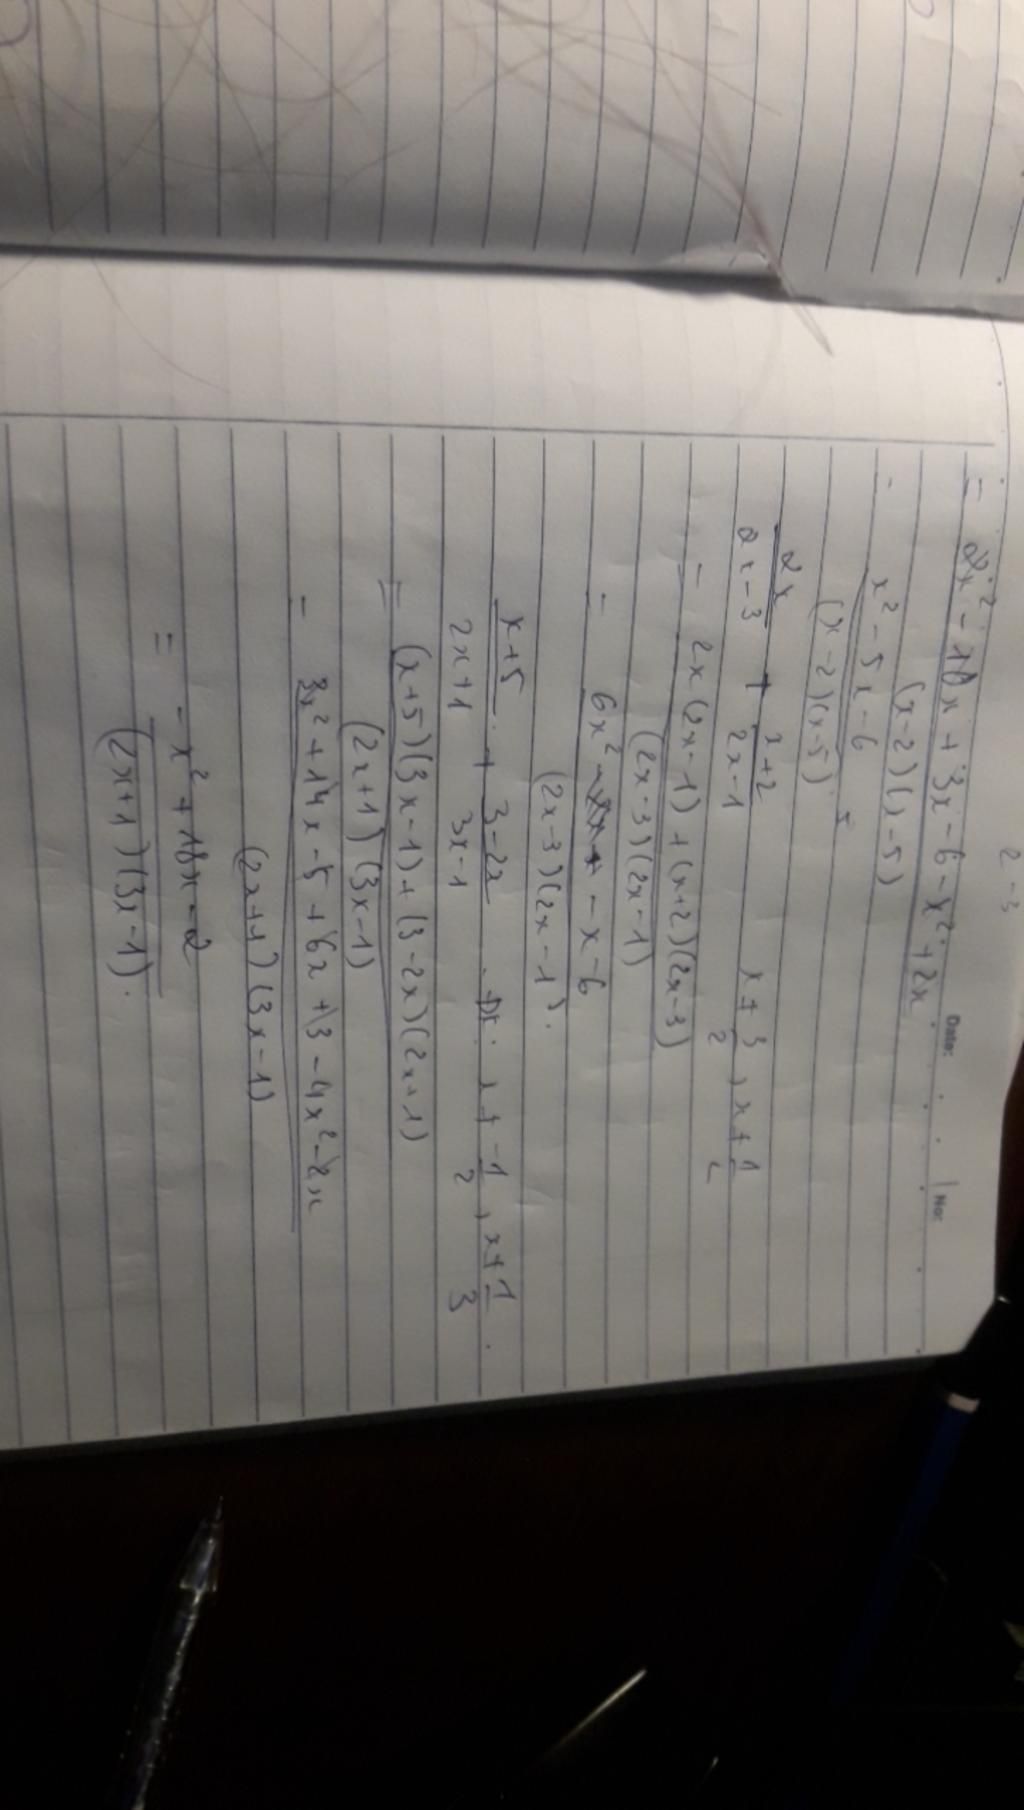 2 - 3
Date: No:
= 2x² - 10x + 3x - 6 - x² + 2x
(x-2)(x-5)
- x² - 5x - 6
(x-2)(x-5)
2x + x+2 x ≠ 3 , x ≠ 1
2x-3 2x-1 2
= 2x(2x-1) + (x+2)(2x-3)
(2x-3)(2x-1)
= 6x² - x - 6
(2x-3)(2x-1).
x+5 + 3-2x x ≠ -1 , x ≠ 1 .
2x+1 3x-1 2 3
= (x+5)(3x-1) + (3-2x)(2x+1)
(2x+1)(3x-1)
= 3x² + 14x - 5 + 6x + 3 - 4x² - 2x
(2x+1)(3x-1)
= -x² + 18x - 2
(2x+1)(3x-1).